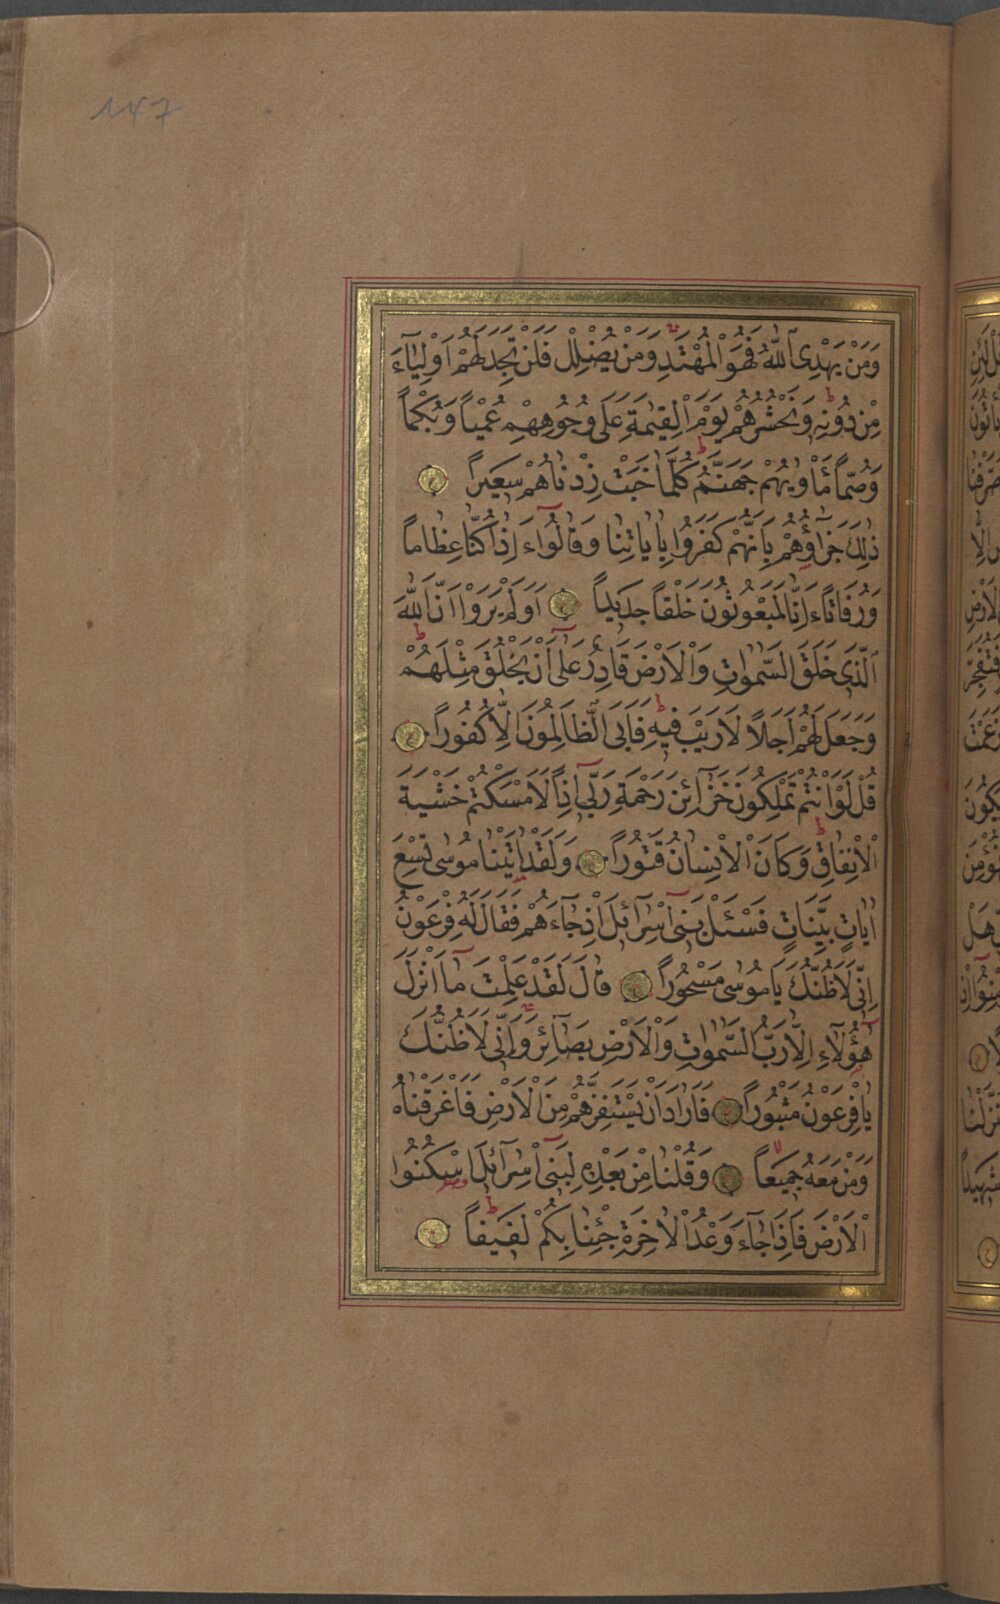 147
وَمَنْ يَهْدِى اللّٰهُ فَهُوَ الْمُهْتَدِ وَمَنْ يُضْلِلْ فَلَنْ تَجِدَ لَهُمْ اَوْلِيَٓاءَ
مِنْ دُونِهِ وَنَحْشُرُهُمْ يَوْمَ الْقِيٰمَةِ عَلٰى وُجُوهِهِمْ عُمْيًا وَبُكْمًا
وَصُمًّا مَأْوٰيهُمْ جَهَنَّمُ كُلَّمَا خَبَتْ زِدْنَاهُمْ سَعِيرًا
ذٰلِكَ جَزَٓاؤُهُمْ بِاَنَّهُمْ كَفَرُوا بِاٰيَاتِنَا وَقَالُٓوا ءَاِذَا كُنَّا عِظَامًا
وَرُفَاتًا ءَاِنَّا لَمَبْعُوثُونَ خَلْقًا جَدِيدًا اَوَلَمْ يَرَوْا اَنَّ اللّٰهَ
الَّذِى خَلَقَ السَّمٰوَاتِ وَالْاَرْضَ قَادِرٌ عَلٰٓى اَنْ يَخْلُقَ مِثْلَهُمْ
وَجَعَلَ لَهُمْ اَجَلًا لَارَيْبَ فِيهِ فَاَبَى الظَّالِمُونَ اِلَّا كُفُورًا
قُلْ لَوْ اَنْتُمْ تَمْلِكُونَ خَزَٓائِنَ رَحْمَةِ رَبِّٓى اِذًا لَاَمْسَكْتُمْ خَشْيَةَ
الْاِنْفَاقِ وَكَانَ الْاِنْسَانُ قَتُورًا وَلَقَدْ اٰتَيْنَا مُوسٰى تِسْعَ
اٰيَاتٍ بَيِّنَاتٍ فَسْئَلْ بَنِٓى اِسْرَٓائِلَ اِذْ جَٓاءَهُمْ فَقَالَ لَهُ فِرْعَوْنُ
اِنِّى لَاَظُنُّكَ يَا مُوسٰى مَسْحُورًا قَالَ لَقَدْ عَلِمْتَ مَٓا اَنْزَلَ
هٰٓؤُلَٓاءِ اِلَّا رَبُّ السَّمٰوَاتِ وَالْاَرْضِ بَصَٓائِرَ وَاِنِّى لَاَظُنُّكَ
يَا فِرْعَوْنُ مَثْبُورًا فَاَرَادَ اَنْ يَسْتَفِزَّهُمْ مِنَ الْاَرْضِ فَاَغْرَقْنَاهُ
وَمَنْ مَعَهُ جَمِيعًا وَقُلْنَا مِنْ بَعْدِهِ لِبَنِٓى اِسْرَٓائِلَ اسْكُنُوا
الْاَرْضَ فَاِذَا جَٓاءَ وَعْدُ الْاٰخِرَةِ جِئْنَا بِكُمْ لَفِيفًا